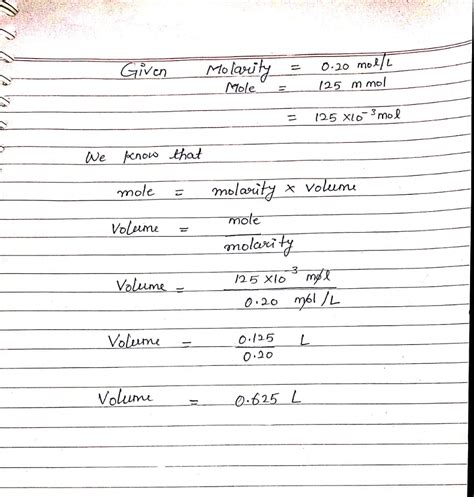 Given Molarity = 0.20 mol/L
Mole = 125 m mol
= 125 ×10⁻³ mol
We know that
mole = molarity × volume
Volume = mole / molarity
Volume = 125 ×10⁻³ mol / 0.20 mol/L
Volume = 0.125 / 0.20 L
Volume = 0.625 L